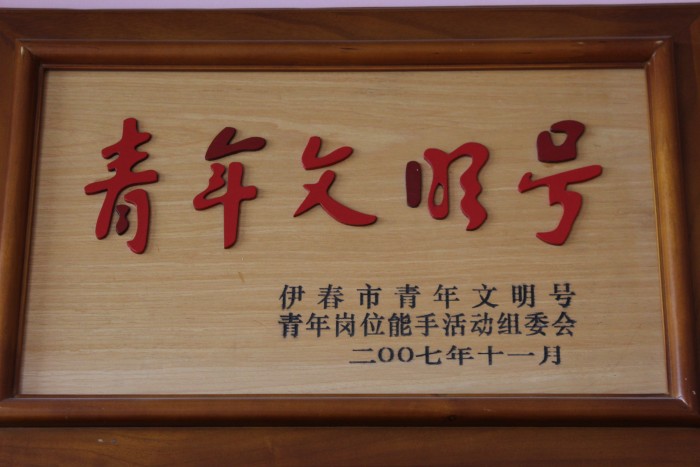 青年文明号
伊春市青年文明号
青年岗位能手活动组委会
二00七年十一月